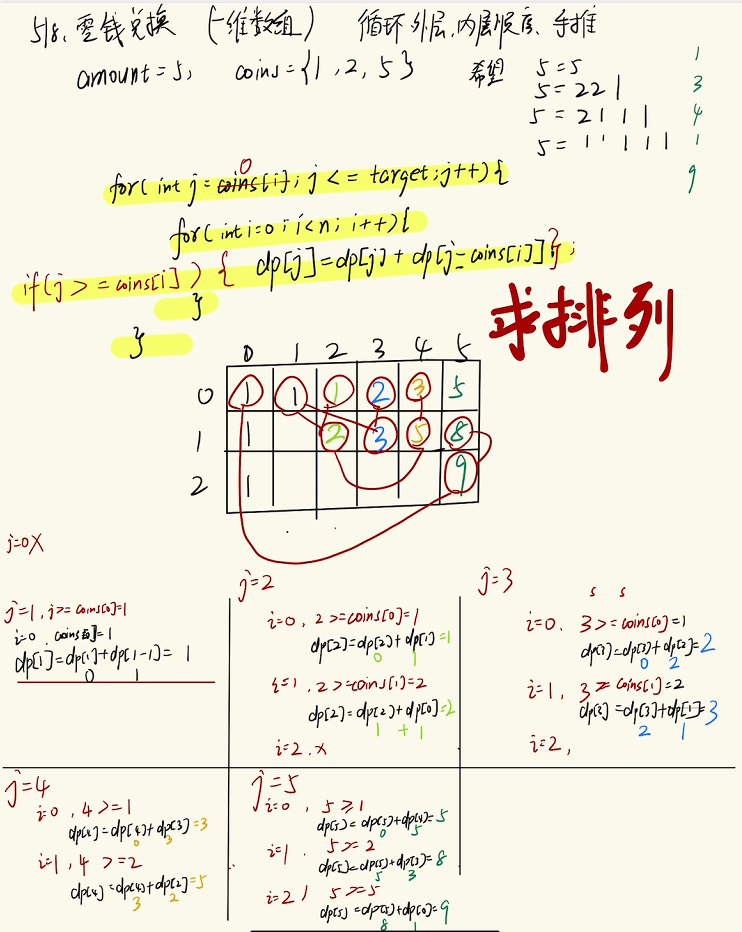 518、零钱兑换 (一维数组) 循环外层,内层顺序、手推
amount=5, coins={1,2,5} 希望 5=5 1
5=221 3
5=2111 4
5=11111 1
9
0
for(int j=coins[i]; j<=target;j++){
for(int i=0;i<n;i++){
if(j>=coins[i]) { dp[j]=dp[j]+dp[j-coins[i]]};
}
}
求排列
0 1 2 3 4 5
0 1 1 1 2 3 5
1 1 2 3 5 8
2 1 9
j=0X
j=1, j>=coins[0]=1
i=0, coins[0]=1
dp[1]=dp[1]+dp[1-1]= 1
0 1
j=2
i=0, 2>=coins[0]=1
dp[2]=dp[2]+dp[1]=1
0 1
i=1, 2>=coins[1]=2
dp[2]=dp[2]+dp[0]=2
1 + 1
i=2,X
j=3
s s
i=0, 3>=coins[0]=1
dp[3]=dp[3]+dp[2]=2
0 2
i=1, 3≥coins[1]=2
dp[3]=dp[3]+dp[1]=3
2 1
i=2,
j=4
i=0, 4>=1
dp[4]=dp[4]+dp[3]=3
0 3
i=1, 4>=2
dp[4]=dp[4]+dp[2]=5
3 2
j=5
i=0, 5≥1
dp[5]=dp[5]+dp[4]=5
0 5
i=1, 5≥2
dp[5]=dp[5]+dp[3]=8
5 3
i=2, 5≥5
dp[5]=dp[5]+dp[0]=9
8 1